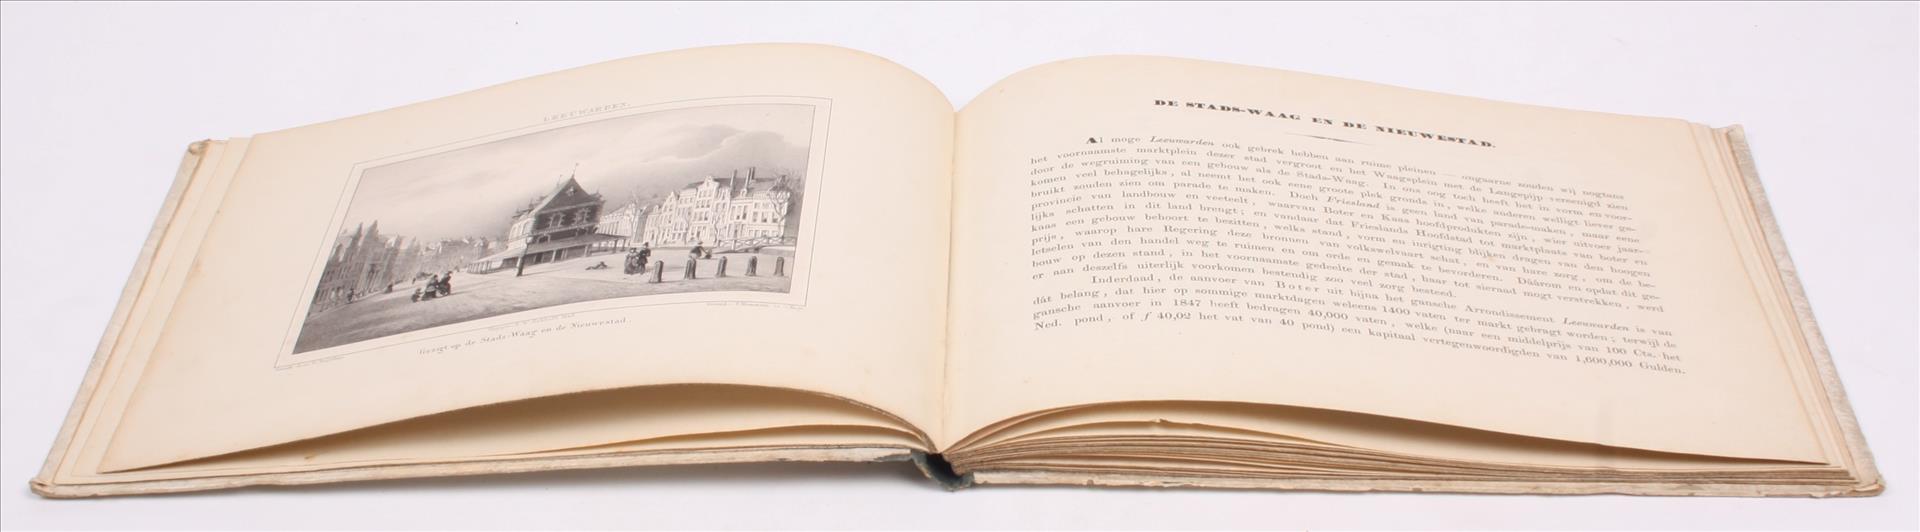 LEEUWARDEN.
Gezigt op de Stads-Waag en de Nieuwestad.
DE STADS-WAAG EN DE NIEUWESTAD.
Al moge Leeuwarden ook gebrek hebben aan ruime pleinen — ongaarne zouden wij nogtans
het voornaamste marktplein dezer stad vergroot en het Waagsplein met de Langepijp vereenigd zien
door de wegruiming van een gebouw als de Stads-Waag. In ons oog toch heeft het in vorm en voor-
komen veel behagelijks, al neemt het ook eene groote plek gronds in, welke anderen welligt liever ge-
bruikt zouden zien om parade te maken. Doch Friesland is geen land van parade-maken, maar eene
provincie van landbouw en veeteelt, waarvan Boter en Kaas hoofdprodukten zijn, wier uitvoer jaar-
lijks schatten in dit land brengt; en vandaar dat Frieslands Hoofdstad tot marktplaats van boter en
kaas een gebouw behoort te bezitten, welks stand, vorm en inrigting blijken dragen van den hoogen
prijs, waarop hare Regering deze bronnen van volkswelvaart schat, en van hare zorg, om de be-
letselen van den handel weg te ruimen en om orde en gemak te bevorderen. Dáárom en opdat dit ge-
bouw op dezen stand, in het voornaamste gedeelte der stad, haar tot sieraad mogt verstrekken, werd
er aan deszelfs uiterlijk voorkomen bestendig zoo veel zorg besteed.
Inderdaad, de aanvoer van Boter uit bijna het gansche Arrondissement Leeuwarden is van
dát belang, dat hier op sommige marktdagen weleens 1400 vaten ter markt gebragt worden; terwijl de
gansche aanvoer in 1847 heeft bedragen 40,000 vaten, welke (naar een middelprijs van 100 Cts. het
Ned. pond, of f 40,02 het vat van 40 pond) een kapitaal vertegenwoordigden van 1,600,000 Gulden.